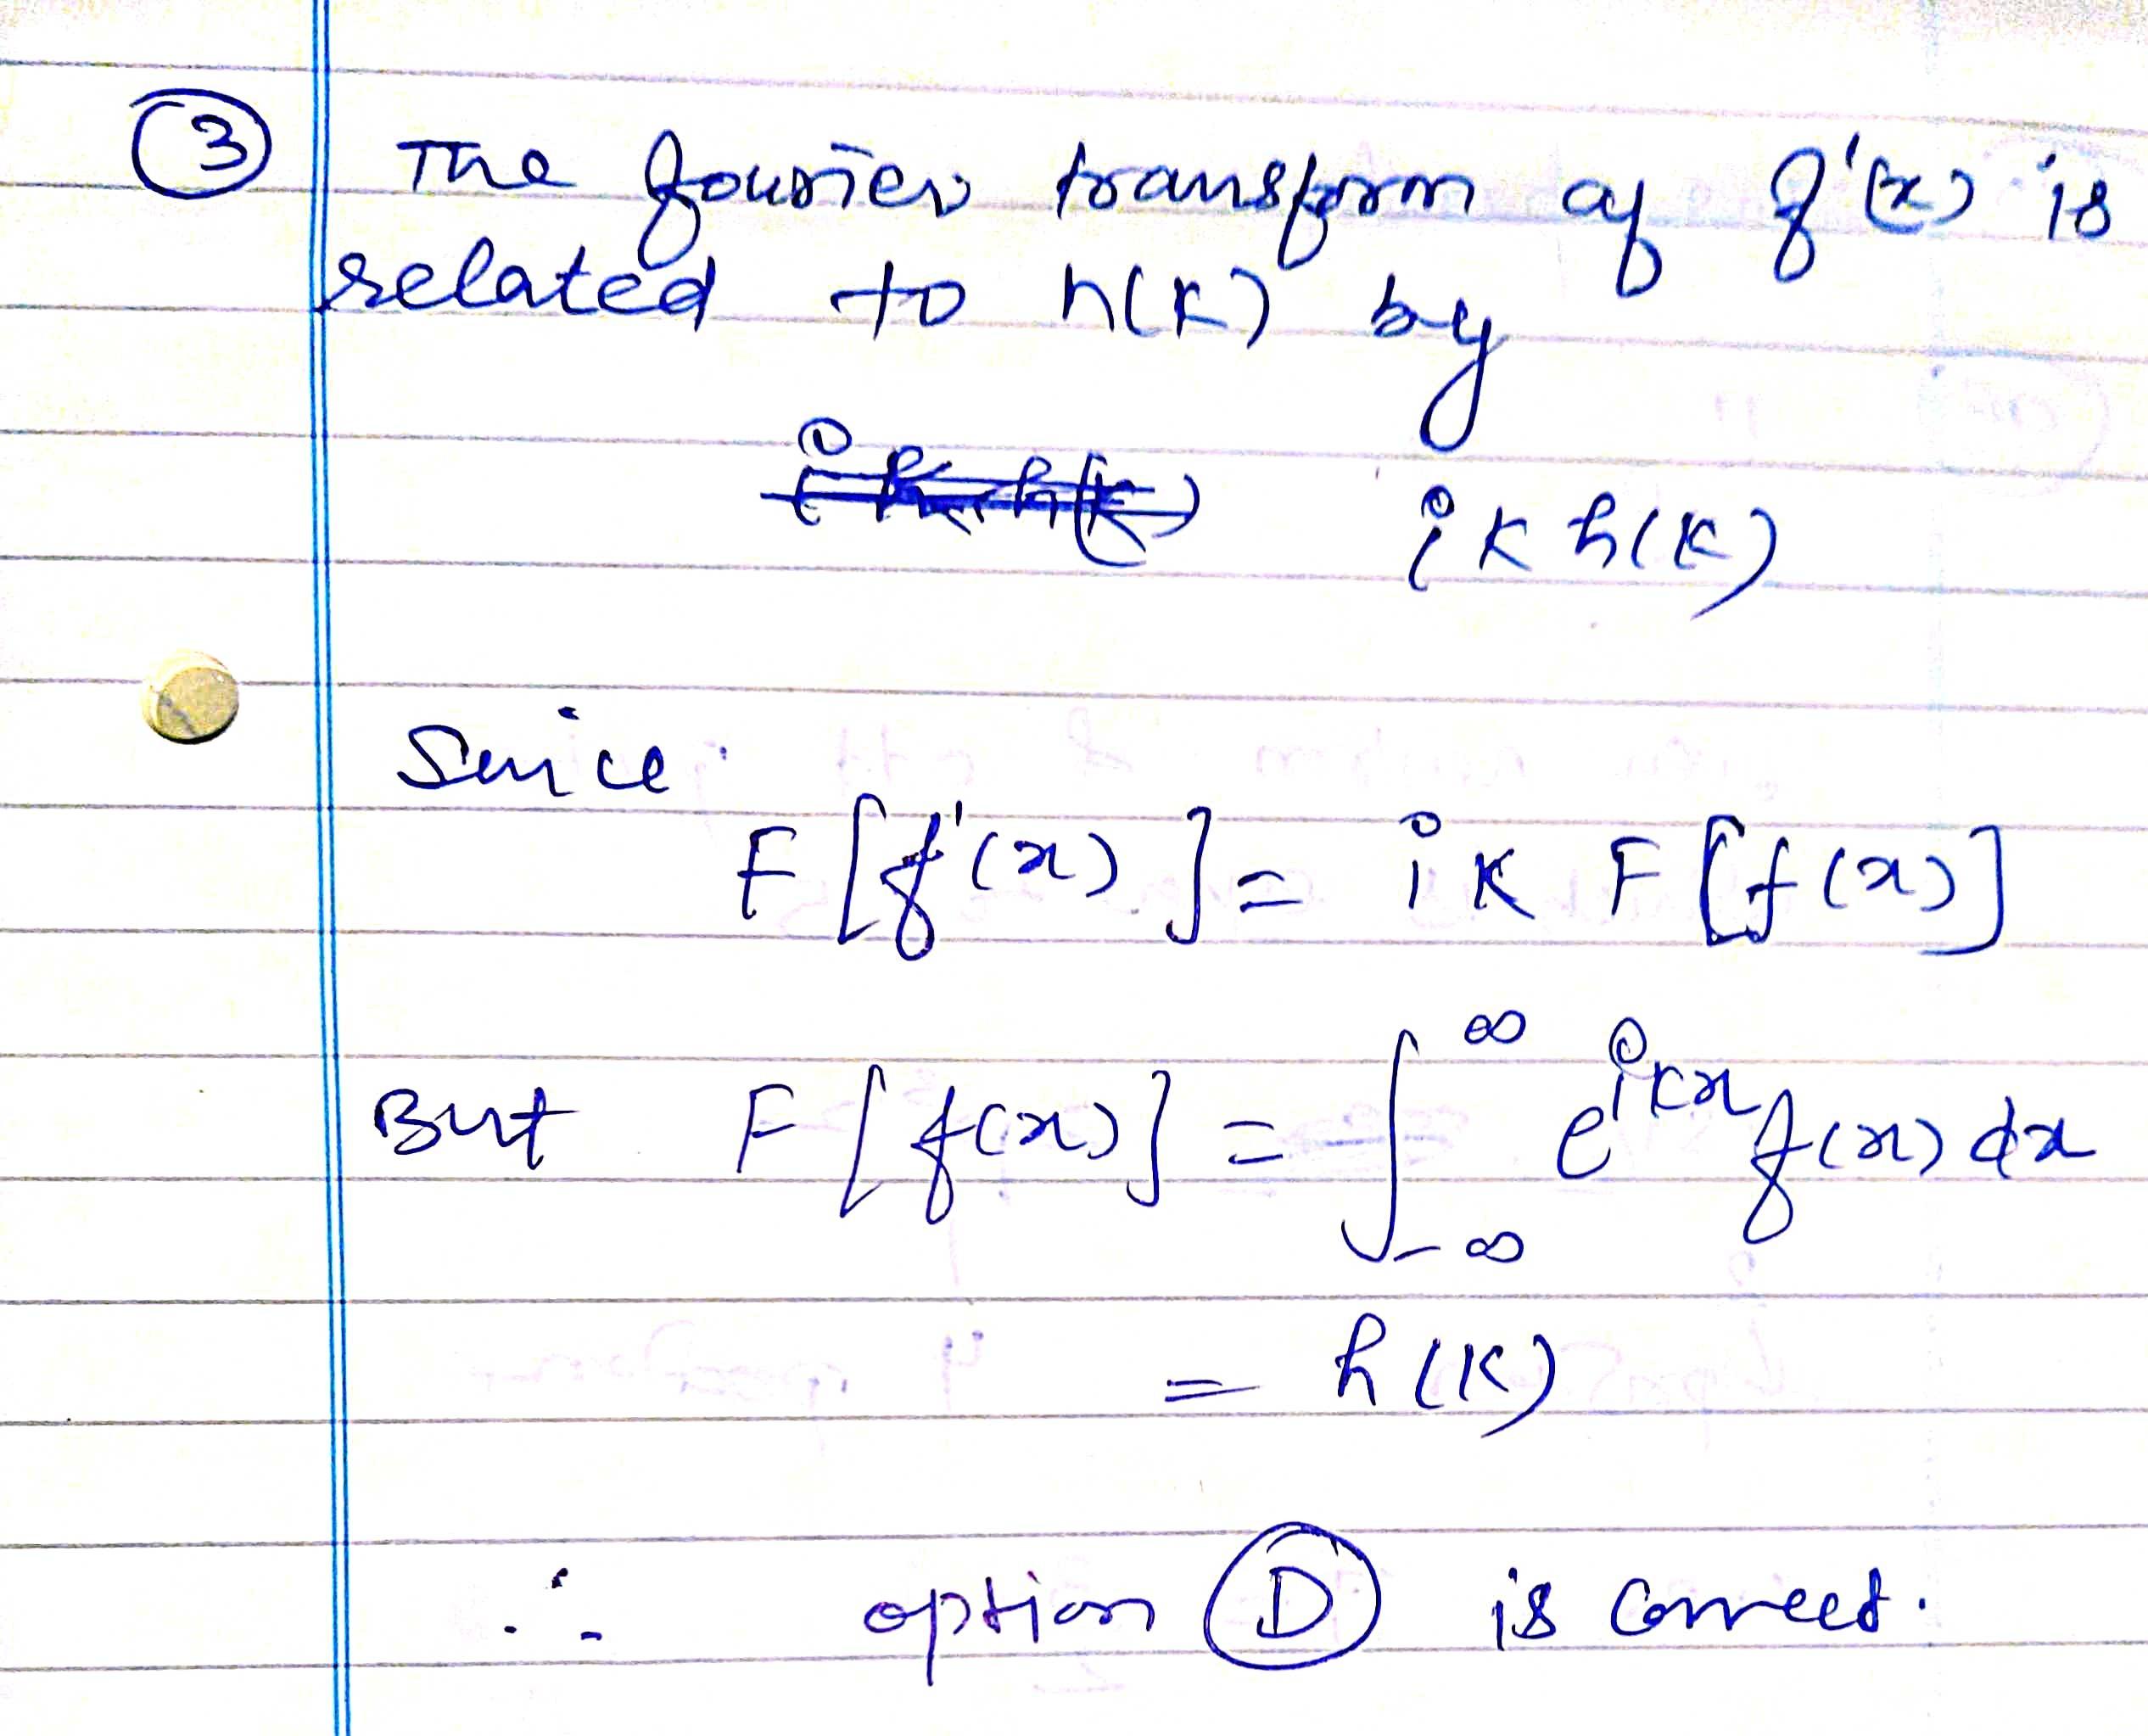 ③ The fourier transform of f'(x) is
related to h(k) by
i k h(k) i k h(k)
Since
F[f'(x)] = i k F[f(x)]
But F[f(x)] = ∫_{-∞}^{∞} e^{ikx} f(x) dx
= h(k)
∴ option Ⓓ is correct.